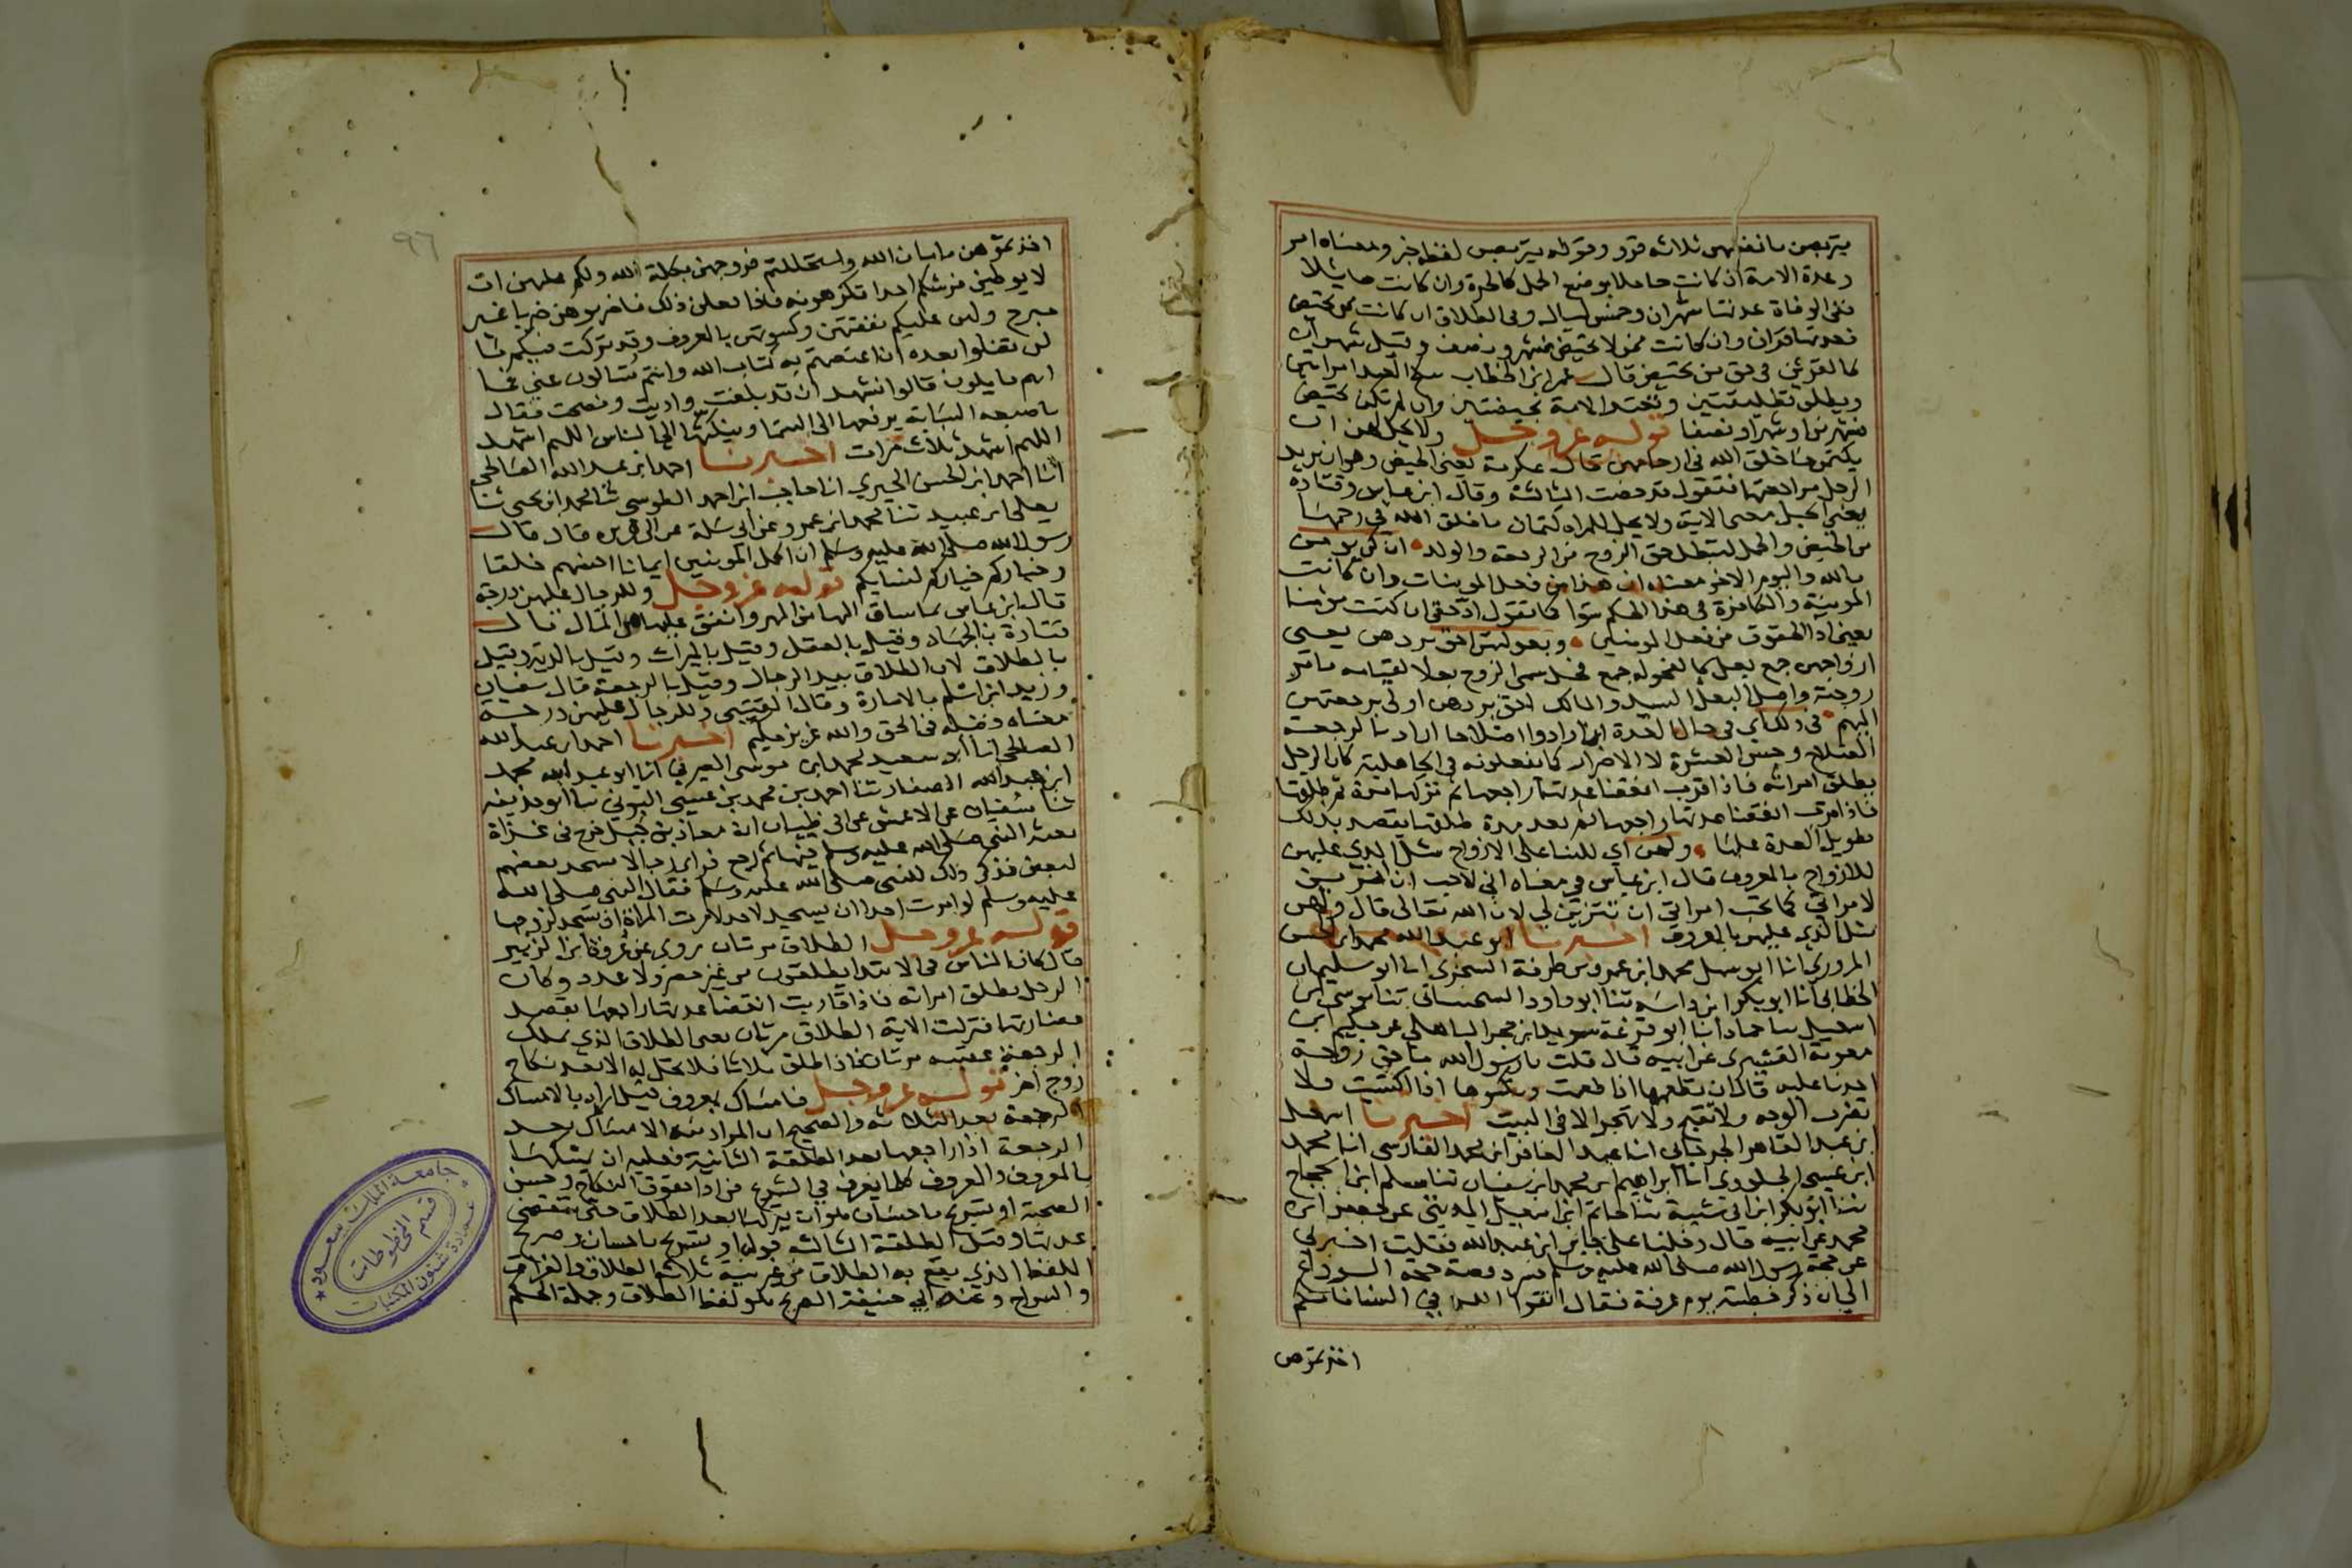 يتربصن بانفسهن ثلاثه قرو وقوله يتربصن لفظه خبر ومعناه امر
وعدة الامة ان كانت حاملا بوضع الحمل كالحرة وان كانت حايلا
ففى الوفاة عدتها شهران وخمس ليال وفى الطلاق ان كانت ممن تحيض
فعدتها قران وان كانت ممن لا تحيض فشهر ونصف وقيل شهران
كالقرئين فى حق من تحيض قال عمر ابن الخطاب ينكح العبد امراتين
ويطلق تطليقتين وتعتد الامة بحيضتين وان لم تكن تحيض
فشهرين او شهرا ونصفا قوله عز وجل ولا يحل لهن ان
يكتمن ما خلق الله فى ارحامهن قال عكرمة يعنى الحيض وهو ان يريد
الرجل مراجعتها فتقول قد حضت الثالثة وقال ابن عباس وقتادة
يعنى الحبل معنى الاية ولا يحل للمراه كتمان ما خلق الله فى رحمها
من الحيض والحمل لتبطل حق الزوج من الرجعة والولد ان كن يومن
بالله واليوم الاخر معناه ان هذا من فعل المومنات وان كانت
المومنة والكافرة فى هذا الحكم سوا كما تقول اد حقى ان كنت مومنا
يعنى اد الحقوق من فعل المومنين وبعولتهن احق بردهن يعنى
ازواجهن جمع بعل كالفحوله جمع فحل سمى الزوج بعلا لقيامه بامر
زوجته واصل البعل السيد والمالك احق بردهن اولى برجعتهن
اليهم فى ذلك اى فى حال العدة ان ارادوا اصلاحا اراد بالرجعة
الصلاح وحسن العشرة لا الاضرار كما يفعلونه فى الجاهلية كان الرجل
يطلق امراته فاذا قرب انقضا عدتها راجعها ثم تركها مدة ثم طلقها
فاذا قرب انقضا عدتها راجعها ثم بعد مدة طلقها يقصد بذلك
تطويل العدة عليها ولهن اي للنسا على الازواج مثل الذى عليهن
للازواج بالمعروف قال ابن عباس فى معناه انى لاحب ان اتزين
لامراتى كما تحب امراتي ان تتزين لي لان الله تعالى قال ولهن
مثل الذى عليهن بالمعروف اخبرنا ابو عبد الله محمد ابن الحسن
المروزي انا ابو سهل محمد ابن عمر بن طرفة السجزى انا ابو سليمان
الخطابى انا ابو بكر ابن داسه ثنا ابو داود السجستانى ثنا موسى بن
اسمعيل سا حماد انا ابو قزعة سويد ابن حجر الباهلى عن حكيم ابن
معوية القشيرى عن ابيه قال قلت يا رسول الله ما حق زوجة
احدنا عليه قال ان تطعمها اذا طعمت وتكسوها اذا اكتسيت ولا
تضرب الوجه ولا تقبح ولا تهجر الا فى البيت اخبرنا اسمعيل
ابن عبد القاهر الجرجانى انا عبد الغافر ابن محمد الفارسى انا محمد
ابن عيسى الجلودى انا ابراهيم بن محمد ابن سفيان ثنا مسلم ابن الحجاج
ثنا ابو بكر ابن ابى شيبة ثنا حاتم ابن اسمعيل المدينى عن جعفر ابن
محمد عن ابيه قال دخلنا على جابر ابن عبد الله فقلت اخبرنى
عن حجة رسول الله صلى الله عليه وسلم فسرد قصة حجة الوداع
الى ان ذكر خطبته يوم عرفة فقال اتقوا الله في النسا فانكم
اخذتموهن
٩٦
اخذتموهن بامان الله واستحللتم فروجهن بكلمة الله ولكم عليهن ان
لا يوطين فرشكم احدا تكرهونه فاذا فعلن ذلك فاضربوهن ضربا غير
مبرح ولهن عليكم نفقتهن وكسوتهن بالمعروف وقد تركت فيكم ما
لن تضلوا بعده ان اعتصمتم به كتاب الله وانتم تسالون عني فما
انتم قايلون قالوا نشهد ان قد بلغت واديت ونصحت فقال
باصبعه السبابه يرفعها الى السما وينكتها الى الناس اللهم اشهد
اللهم اشهد ثلاث مرات اخبرنا احمد ابن عبد الله الصالحى
انا احمد ابن الحسن الحيري انا حاجب ابن احمد الطوسى ثنا محمد ابن يحيى ثنا
يعلى ابن عبيد ثنا محمد ابن عمرو عن ابى سلمة عن ابى هريره قال قال
رسول الله صلى الله عليه وسلم ان اكمل المومنين ايمانا احسنهم خلقا
وخياركم خياركم لنسايكم قوله عز وجل وللرجال عليهن درجة
قال ابن عباس بما ساق اليها من المهر وانفق عليها من المال قال
قتادة بالجهاد وقيل بالعقل وقيل بالميراث وقيل بالدية وقيل
بالطلاق لان الطلاق بيد الرجال وقيل بالرجعة قال سفيان
وزيد ابن اسلم بالامارة وقال القتيبى وللرجال عليهن درجة
معناه فضيله فى الحق والله عزيز حكيم اخبرنا احمد ابن عبد الله
الصالحى انا ابو سعيد محمد ابن موسى الصيرفى انا ابو عبد الله محمد
ابن عبد الله الصفار ثنا احمد بن محمد بن عيسى البرتى سا ابو حذيفه
ثنا سفيان عن الاعمش عن ابى ظبيان ان معاذ بن جبل خرج فى غزاة
بعثه النبى صلى الله عليه وسلم فيها ثم رجع فراى رجالا يسجد بعضهم
لبعض فذكر ذلك للنبى صلى الله عليه وسلم فقال النبى صلى الله
عليه وسلم لو امرت احدا ان يسجد لاحد لامرت المراة ان تسجد لزوجها
قوله عز وجل الطلاق مرتان روي عن عروة ابن الزبير
قال كان الناس فى الابتدا يطلقون من غير حصر ولا عدد وكان
الرجل يطلق امراته فاذا قاربت انقضا عدتها راجعها يقصد
مضارتها فنزلت الاية الطلاق مرتان يعنى الطلاق الذى يملك
الرجعة عقيبه مرتان فاذا طلق ثلاثا فلا تحل له الا بعد نكاح
زوج اخر قوله عز وجل فامساك بمعروف قيل اراد بالامساك
الرجعة بعد الثلاثه والصحيح ان المراد منه الامساك بعد
الرجعة اذا راجعها بعد الطلقة الثانية فعليه ان يمسكها
بالمعروف والمعروف كلما يعرف في الشرع من ادا حقوق النكاح وحسن
الصحبة او تسريح باحسان هو ان يتركها بعد الطلاق حتى تنقضى
عدتها وقيل الطلقة الثالثه قوله او تسريح باحسان وصريح
اللفظ الذي يقع به الطلاق من غير نية ثلاثه الطلاق والفراق
والسراح وعند ابي حنيفة الصريح هو لفظ الطلاق وجملة الحكم
جامعة الملك سعود
عمادة شئون المكتبات
قسم المخطوطات